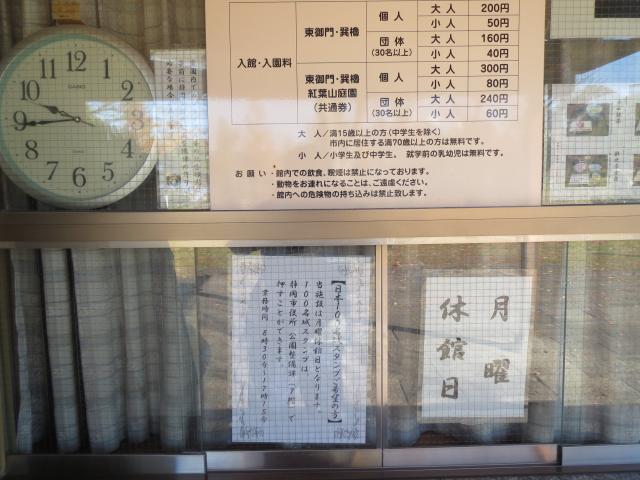 CASIO
12
1
2
3
4
5
6
7
8
9
10
11
入館・入園料
東御門・巽櫓
個 人
大 人
200円
小 人
50円
団 体
(30名以上)
大 人
160円
小 人
40円
東御門・巽櫓
紅葉山庭園
(共通券)
個 人
大 人
300円
小 人
80円
団 体
(30名以上)
大 人
240円
小 人
60円
大 人/満15歳以上の方(中学生を除く)
市内に居住する満70歳以上の方は無料です。
小 人/小学生及び中学生。 就学前の乳幼児は無料です。
お 願 い・館内での飲食、喫煙は禁止になっております。
・動物をお連れになることは、ご遠慮ください。
・館内への危険物の持ち込みは禁止致します。
【日本100名城スタンプご希望の方】
当施設は月曜休館日となります
100名城スタンプは、
静岡市役所 公園整備課 で
押すことができます。
業務時間 8時30分~17時15分
月 曜
休 館 日